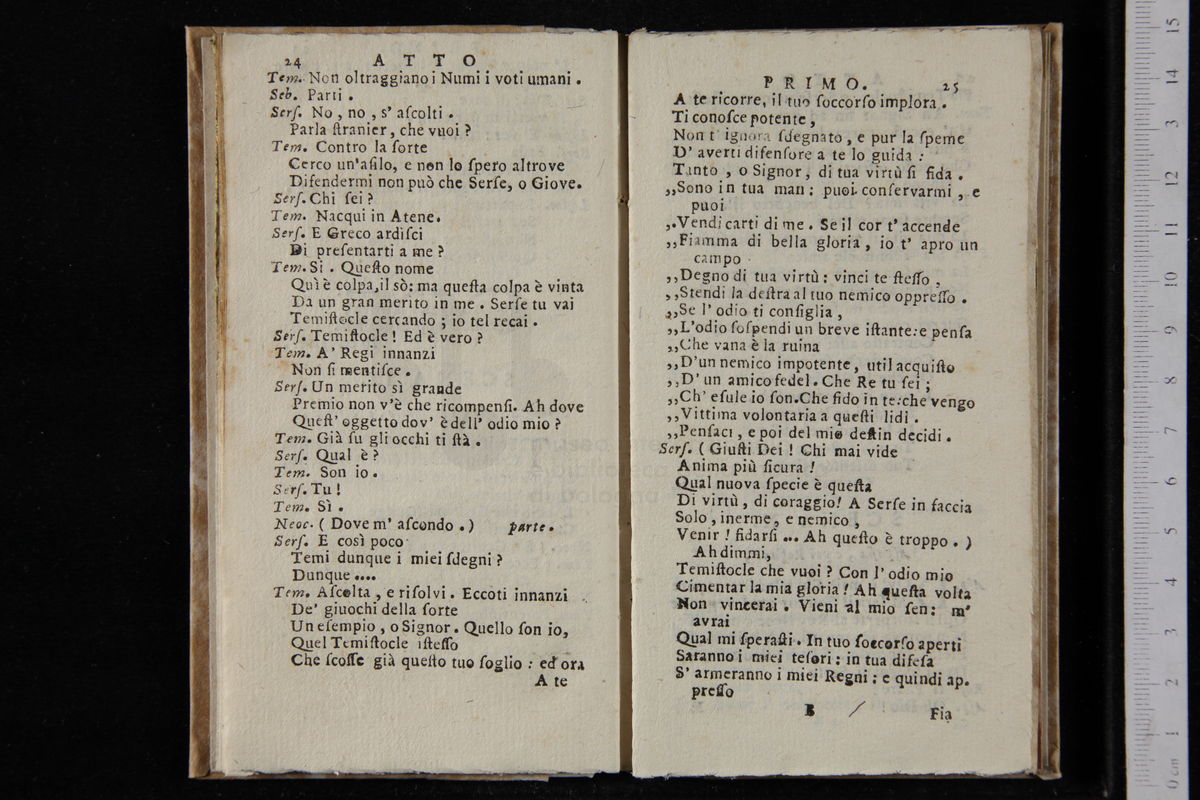 24 ATTO
Tem. Non oltraggiano i Numi i voti umani.
Seb. Parti.
Serſ. No, no, s' aſcolti.
Parla ſtranier, che vuoi?
Tem. Contro la ſorte
Cerco un'aſilo, e non lo ſpero altrove
Difendermi non può che Serſe, o Giove.
Serſ. Chi ſei?
Tem. Nacqui in Atene.
Serſ. E Greco ardiſci
Di preſentarti a me?
Tem. Sì. Queſto nome
Quì è colpa, il sò: ma queſta colpa è vinta
Da un gran merito in me. Serſe tu vai
Temiſtocle cercando; io tel recai.
Serſ. Temiſtocle! Ed è vero?
Tem. A' Regi innanzi
Non ſi mentiſce.
Serſ. Un merito sì grande
Premio non v'è che ricompenſi. Ah dove
Queſt' oggetto dov' è dell' odio mio?
Tem. Già ſu gli occhi ti ſtà.
Serſ. Qual è?
Tem. Son io.
Serſ. Tu!
Tem. Sì.
Neoc. (Dove m' aſcondo.) parte.
Serſ. E così poco
Temi dunque i miei ſdegni?
Dunque....
Tem. Aſcolta, e riſolvi. Eccoti innanzi
De' giuochi della ſorte
Un eſempio, o Signor. Quello ſon io,
Quel Temiſtocle iſteſſo
Che ſcoſſe già queſto tuo ſoglio: ed ora
A te
PRIMO. 25
A te ricorre, il tuo ſoccorſo implora.
Ti conoſce potente,
Non t' ignora ſdegnato, e pur la ſpeme
D' averti difenſore a te lo guida:
Tanto, o Signor, di tua virtù ſi fida.
,,Sono in tua man: puoi conſervarmi, e
puoi
,,Vendicarti di me. Se il cor t' accende
,,Fiamma di bella gloria, io t' apro un
campo
,,Degno di tua virtù: vinci te ſteſſo,
,,Stendi la deſtra al tuo nemico oppreſſo.
,,Se l' odio ti conſiglia,
,,L'odio ſoſpendi un breve iſtante: e penſa
,,Che vana è la ruina
,,D'un nemico impotente, util acquiſto
,,D' un amico fedel. Che Re tu ſei;
,,Ch' eſule io ſon. Che fido in te: che vengo
,,Vittima volontaria a queſti lidi.
,,Penſaci, e poi del mio deſtin decidi.
Serſ. (Giuſti Dei! Chi mai vide
Anima più ſicura!
Qual nuova ſpecie è queſta
Di virtù, di coraggio! A Serſe in faccia
Solo, inerme, e nemico,
Venir! fidarſi... Ah queſto è troppo.)
Ah dimmi,
Temiſtocle che vuoi? Con l' odio mio
Cimentar la mia gloria! Ah queſta volta
Non vincerai. Vieni al mio ſen: m'
avrai
Qual mi ſperaſti. In tuo ſoccorſo aperti
Saranno i miei teſori: in tua difeſa
S' armeranno i miei Regni: e quindi ap.
preſſo
B Fia
0 cm 1 2 3 4 5 6 7 8 9 10 11 12 13 14 15